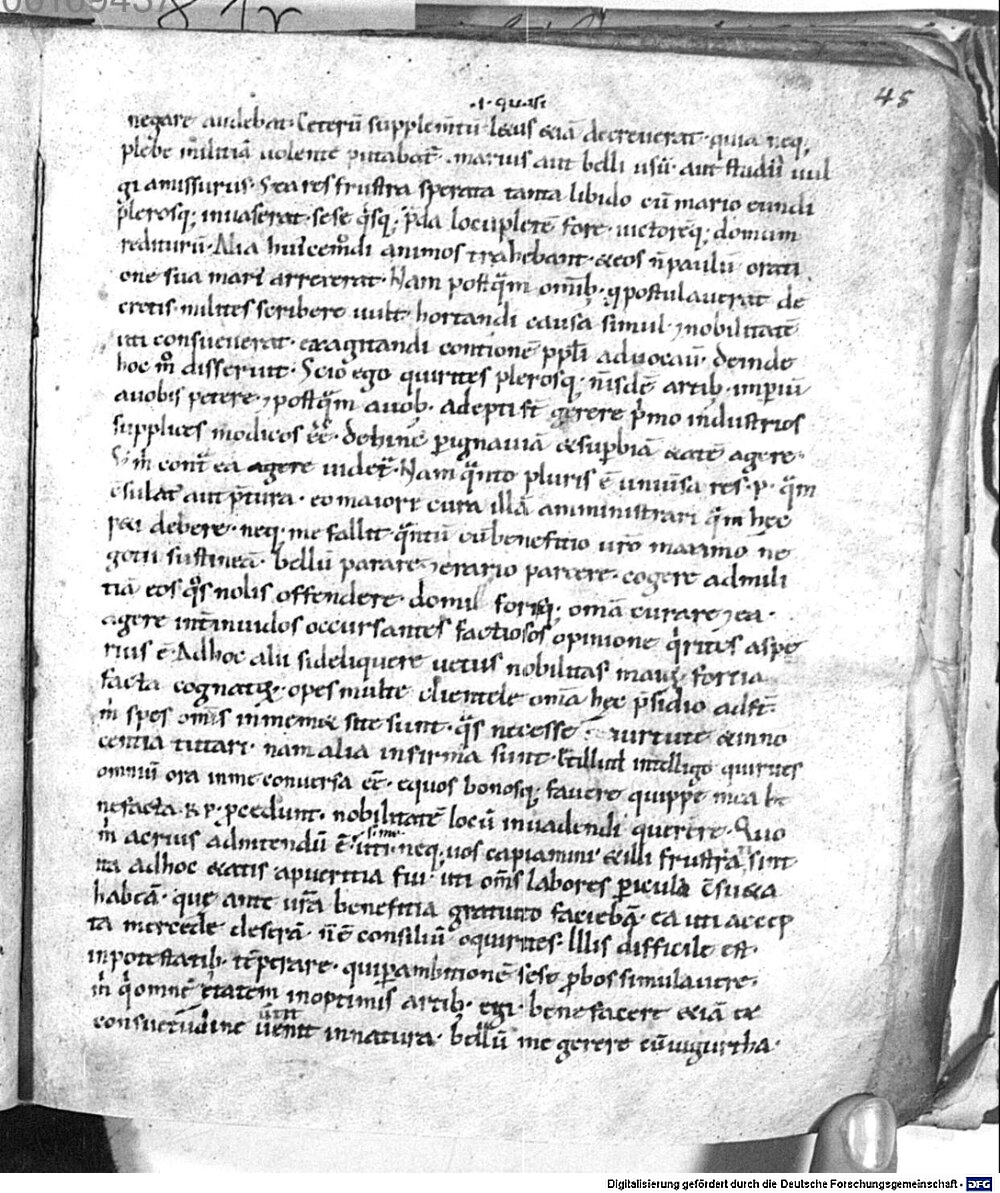 45
.i. quasi
negare audebat. Ceterū supplem̄tū. lęcius &iā decreuerat. quia neq;
plebe militiā uolente putabat̄. marius aut belli usū. aut studiū uul
gi amissurus. S; ea res frustra sperata tanta libido cū mario eundi
plerosq; inuaserat. sese q̇sq; p̄da locupletē fore. uictorēq; domum
rediturū. Alia huicem̊di animos trahebant. &eos ñ paulū orati
one sua mari arrexerat. Nam postq̄m omīb; q̨ postulauerat de
cretis. milites scribere uult. hortandi causa simul. ⁊nobilitatē
uti consueuerat. exagitandi contionē pp̄li aduocauī. deinde
hoc m̊ disseruit. Scio ego quirites plerosq; n̄ isdē artib; imp̄iū
auobis petere. ⁊postq̄m auob; adepti s̄t gerere p̄mo industrios
supplices modicos eē. dehinc p̱ ignauiā &sup̱biā &atē agere.
S; m̄ cont̄ ea agere uidet̄. Nam q̄nto pluris ē uniuersa res.p. q̄m
c̄sulat̄ aut p̄tura. eo maiore cura illā amministrari q̄m hęc
peti debere. neq; me fallit. q̄ntū cū benefitio ur̄o maximo ne
gotii sustineā. bellū parare ⁊erario parcere. cogere admili
tiā eos q̊s nolis offendere. domi forisq; om̄a curare ⁊ea.
agere int̄ inuidos occursantes factiosos opinione q̇rites aspe
rius ē. Adhoc alii si deliquere uetus nobilitas maiorū fortia
facta cognator̄. opes multe clientele om̄a hęc p̄sidio ads̄t.
m̄ spes om̄s inmeme site sunt. q̄s necesse ē uirtute &inno
centia tutari. nam alia infirma sunt. Et illud intelligo quirites
omniū ora inme conuersa eē. equos bonosq; fauere quippe mea be
nefacta. R.P. p̱cedunt. nobilitatē locū inuadendi querere. Quo
m̄ acrius adnitendū ē. uti neq; uos capiamini &illi frustra sint
ita adhoc &atis apueritia fui. uti om̄s labores p̱icula c̄su&a
habeā. que ante ur̄a benefitia gratuito faciebā. ea uti accep
ta mercede deserā. ñ ē consiliū oquirites. Illis difficile est.
inpotestatib; tēp̱rare. qui p̱ ambitionē sese p̱bos simulauere.
m̄ q̇ omnē etatem inoptimis artib; egi. bene facere &iā ex
consuetudine uenit innatura. bellū me gerere cū iugurtha.
Digitalisierung gefördert durch die Deutsche Forschungsgemeinschaft - DFG